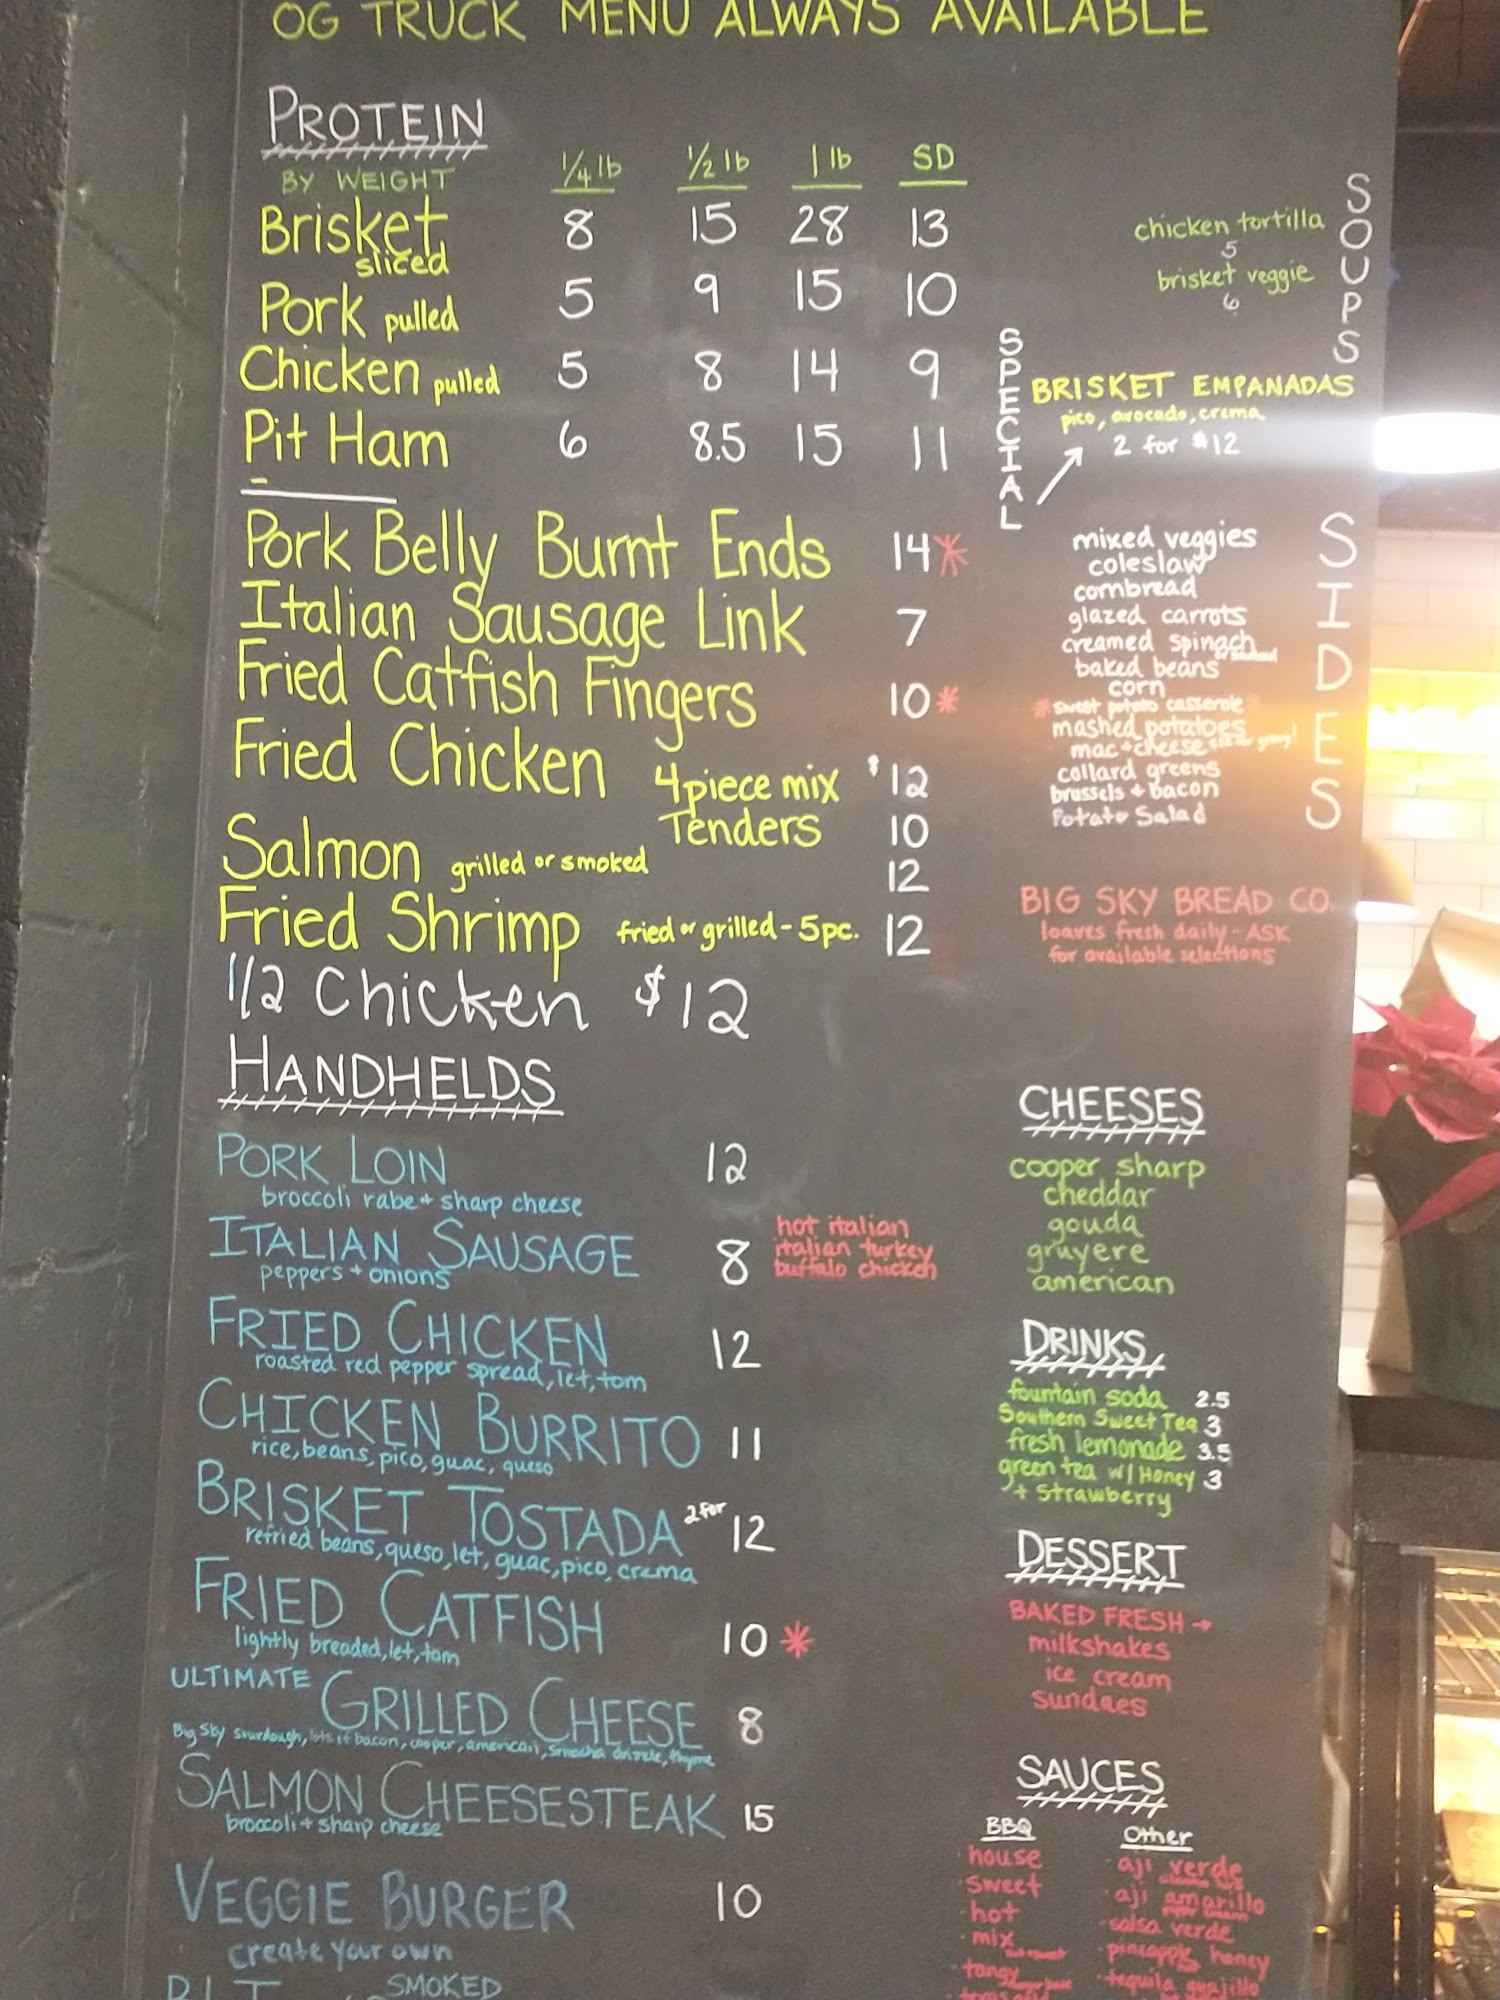 OG TRUCK MENU ALWAYS AVAILABLE
PROTEIN
BY WEIGHT 1/4 lb 1/2 lb 1 lb SD
Brisket sliced 8 15 28 13
Pork pulled 5 9 15 10
Chicken pulled 5 8 14 9
Pit Ham 6 8.5 15 11
Pork Belly Burnt Ends 14*
Italian Sausage Link 7
Fried Catfish Fingers 10*
Fried Chicken 4 piece mix $12
Tenders 10
Salmon grilled or smoked 12
Fried Shrimp fried or grilled - 5pc. 12
1/2 Chicken $12
HANDHELDS
PORK LOIN 12
broccoli rabe + sharp cheese
ITALIAN SAUSAGE 8
peppers + onions
hot italian
italian turkey
buffalo chicken
FRIED CHICKEN 12
roasted red pepper spread, let, tom
CHICKEN BURRITO 11
rice, beans, pico, guac, queso
BRISKET TOSTADA 2 for 12
refried beans, queso, let, guac, pico, crema
FRIED CATFISH 10*
lightly breaded, let, tom
ULTIMATE GRILLED CHEESE 8
Big Sky sourdough, lots of bacon, cooper, american, sriracha drizzle, thyme
SALMON CHEESESTEAK 15
broccoli + sharp cheese
VEGGIE BURGER 10
create your own
BLT SMOKED
SOUPS
chicken tortilla
5
brisket veggie
6
SPECIAL
BRISKET EMPANADAS
pico, avocado, crema
2 for $12
SIDES
mixed veggies
coleslaw
cornbread
glazed carrots
creamed spinach
baked beans
corn
*sweet potato casserole
mashed potatoes
mac + cheese
collard greens
brussels + bacon
Potato Salad
BIG SKY BREAD CO.
loaves fresh daily - ASK
for available selections
CHEESES
cooper sharp
cheddar
gouda
gruyere
american
DRINKS
fountain soda 2.5
Southern Sweet Tea 3
fresh lemonade 3.5
green tea w/ Honey 3
+ strawberry
DESSERT
BAKED FRESH →
milkshakes
ice cream
sundaes
SAUCES
BBQ
· house
· sweet
· hot
· mix
· tangy
Other
· aji verde
· aji amarillo
· salsa verde
· pineapple honey
· tequila guajillo